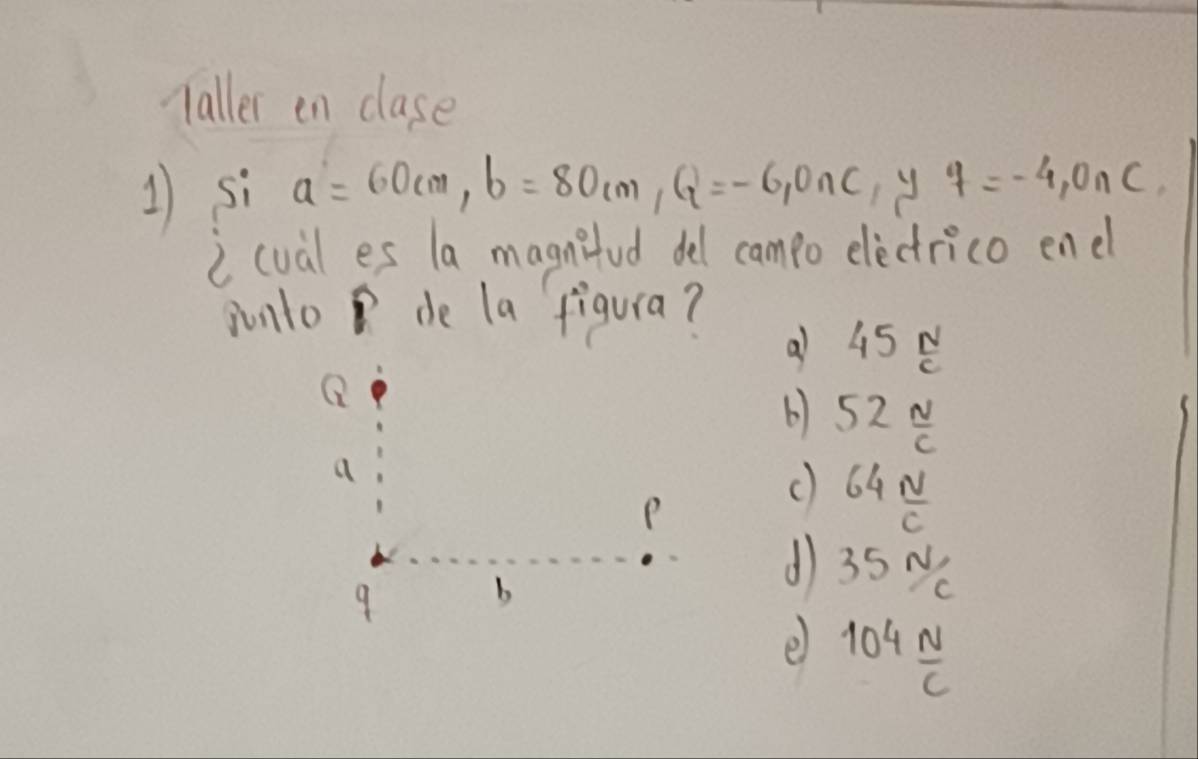 Taller en clase
1) Si a = 60cm, b = 80cm, Q = -6,0nC, y q = -4,0nC.
¿ cuál es la magnitud del campo eléctrico en el
punto P de la figura?
a) 45 N/C
b) 52 N/C
c) 64 N/C
d) 35 N/C
e) 104 N/C
Q
a
P
q
b